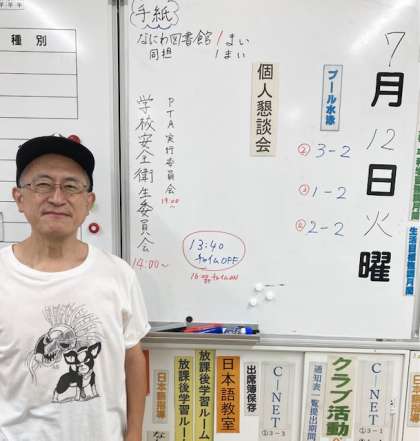 種別
手紙
なにわ図書館 1まい
同担 1まい
7
月
12
日
火
曜
プール水泳
② 3-2
③ 1-2
④ 2-2
個人懇談会
PTA実行委員会
14:00~
学校安全衛生委員会
14:00~
13:40
チャイムOFF
チャイムON
日本語指導
放課後学習ルーム
放課後学習ルーム
日本語教室
出席簿保存
C-NET
①3-1
クラブ活動
通知表一覧提出期間
C-NET
①3-3